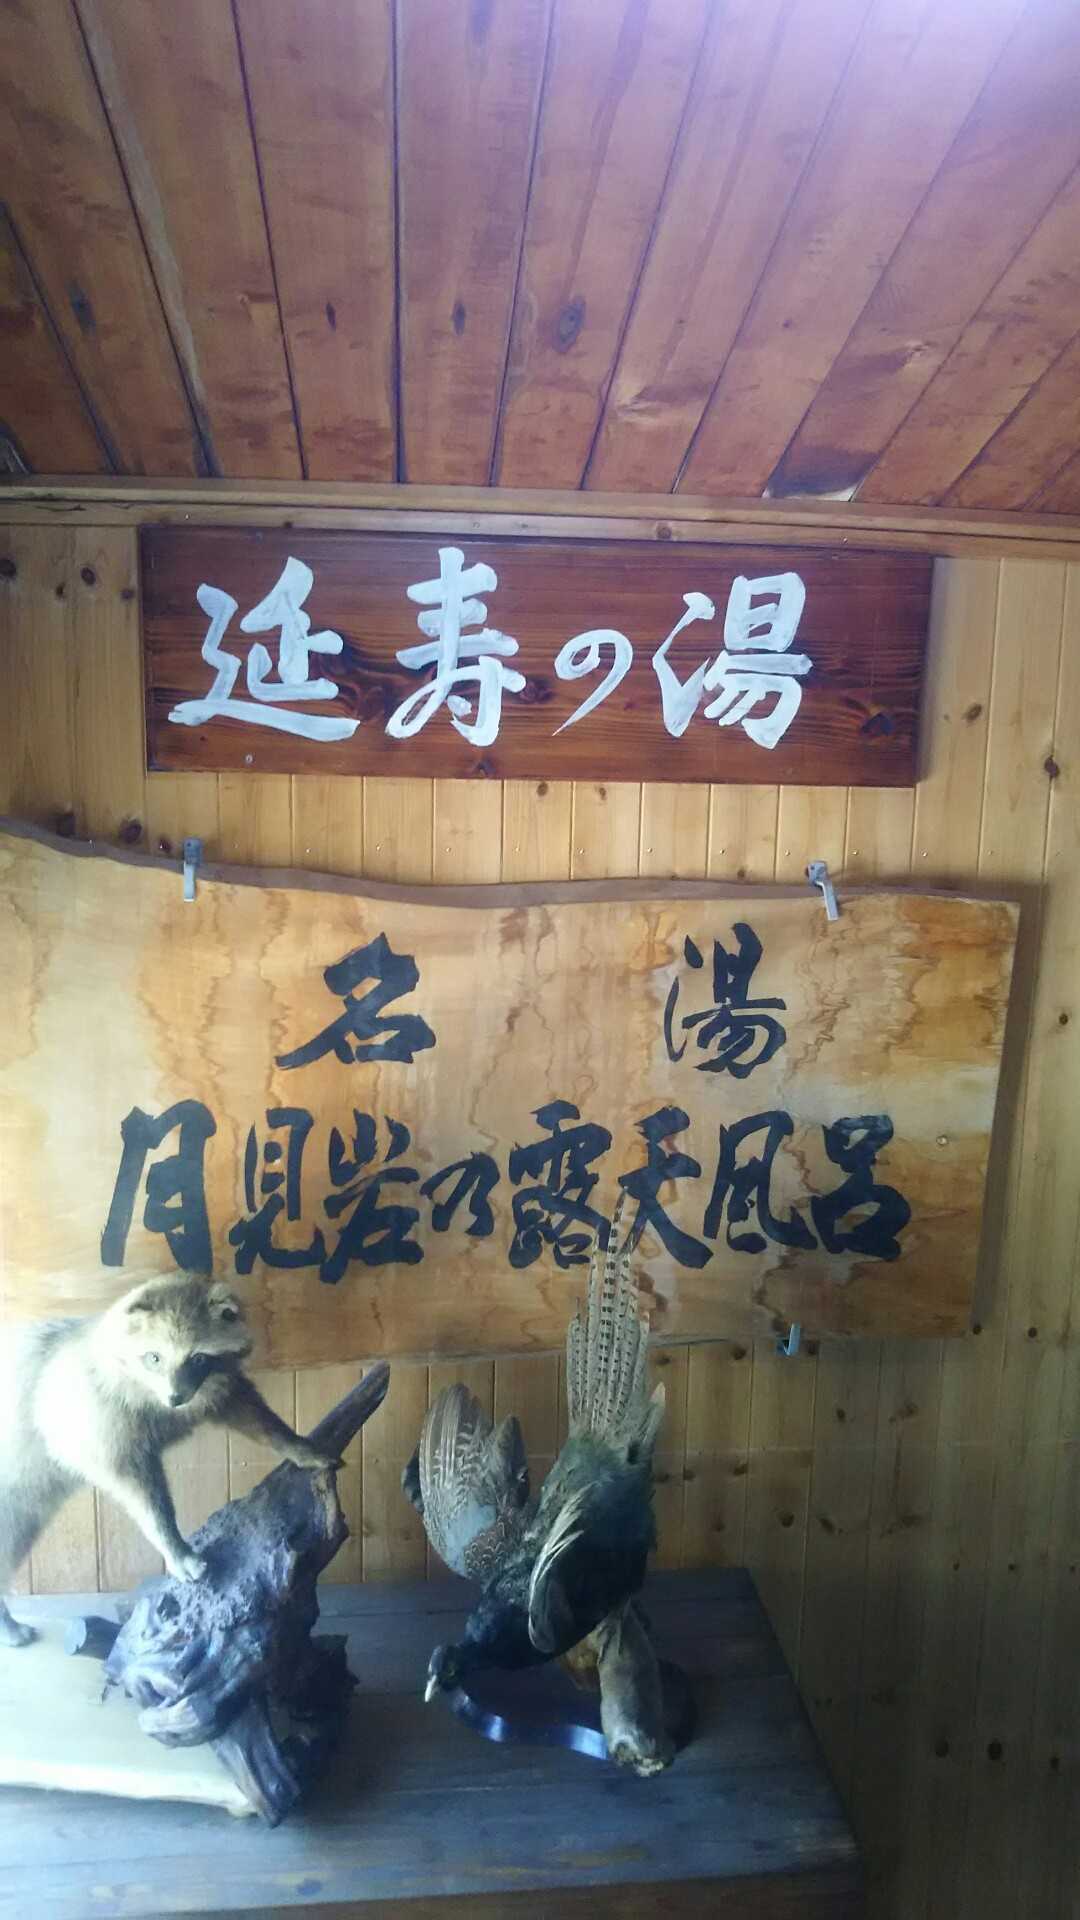 延寿の湯
名湯
月見岩乃露天風呂